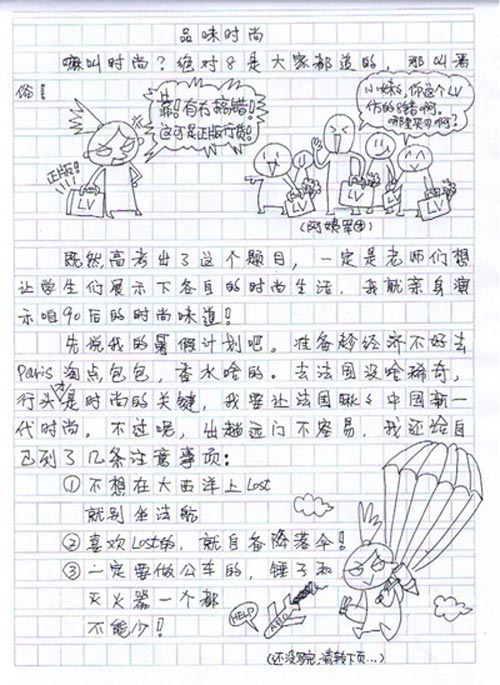 品味时尚
嘛叫时尚?绝对8是大家都追的,那叫恶
俗!
靠!有冇搞错!
这可是正版行货!
正版!
LV
小妹妹,你这个LV
仿的8错啊。
哪里买的啊?
LV
LV
LV
LV
(阿姨军团)
既然高考出了这个题目,一定是老师们想
让学生们展示下各自的时尚生活,我就亲身演
示咱90后的时尚味道!
先说我的暑假计划吧。准备趁经济不好去
Paris淘点包包,香水啥的。去法国没啥稀奇,
行头才是时尚的关键,我要让法国瞅瞅中国新一
代时尚。不过呢,出趟远门不容易,我还给自
己列了几条注意事项:
①不想在大西洋上Lost
就别坐法航
②喜欢Lost的,就自备降落伞!
③一定要做公车的,锤子和
灭火器一个都
不能少!
HELP
(还没完,请转下页...)